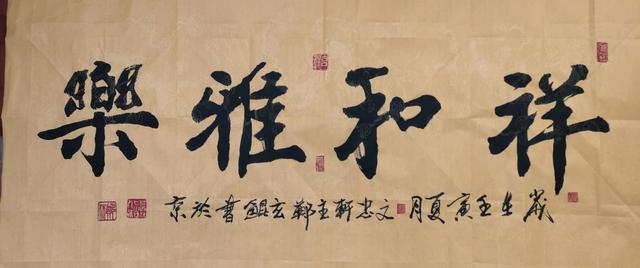 祥和雅樂
歲在壬寅夏月文忠軒主鄭玄鯤書於京